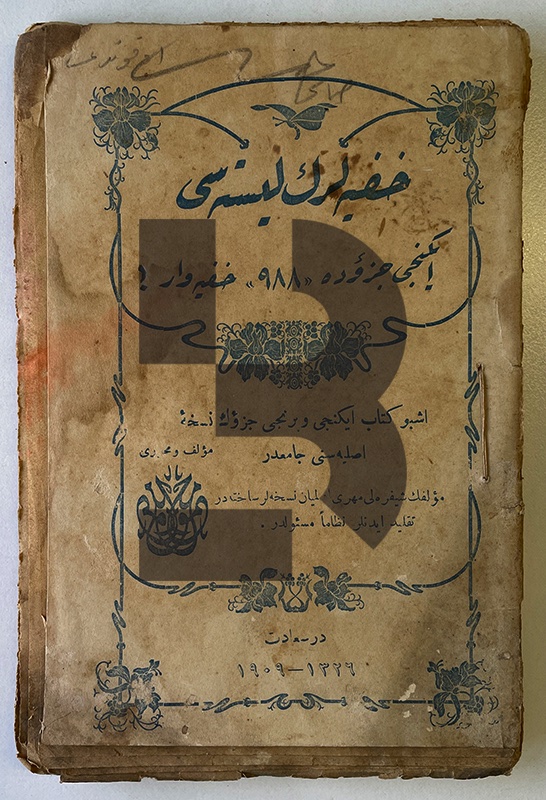 خفیه لرك لیسته سی
ایكنجی جزؤده «٩٨٨» خفیه وار !
اشبو كتاب ایكنجی و برنجی جزؤك نسخهٔ
اصلیه سنی جامعدر
مؤلف و محرری
مؤلفك شیفره لی مهری اولمیان نسخه لر ساخته در
تقلید ایدنلر نظاماً مسئولدر .
در سعادت
١٣٢٦—١٩٠٩